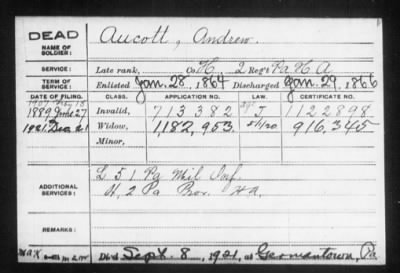 DEAD
NAME OF SOLDIER: Aucott, Andrew.
SERVICE: Late rank, Co. H, 2 Reg't Pa H A
TERM OF SERVICE: Enlisted Jan. 28, 1864 Discharged Jan. 29, 1866
DATE OF FILING. CLASS. APPLICATION NO. LAW. CERTIFICATE NO.
1889 Invalid, 713382 J 1122898
1921 Dec Widow, 1,182,953. 916,345
Minor,
ADDITIONAL SERVICES: L 51 Pa Mil Inf.
H, 2 Pa Prov. HA.
REMARKS:
Died Sept. 8, 1921, at Germantown, Pa